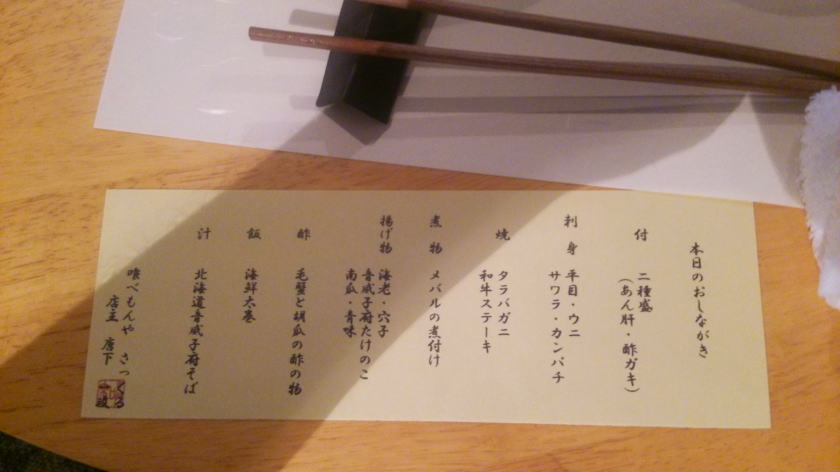 本日のおしながき
付 二種盛
(あん肝・酢ガキ)
刺身 平目・ウニ
サワラ・カンパチ
焼 タラバガニ
和牛ステーキ
煮物 メバルの煮付け
揚げ物 海老・穴子
音威子府たけのこ
南瓜・青味
酢 毛蟹と胡瓜の酢の物
飯 海鮮太巻
汁 北海道音威子府そば
喰べもんや さっ
店主 唐下